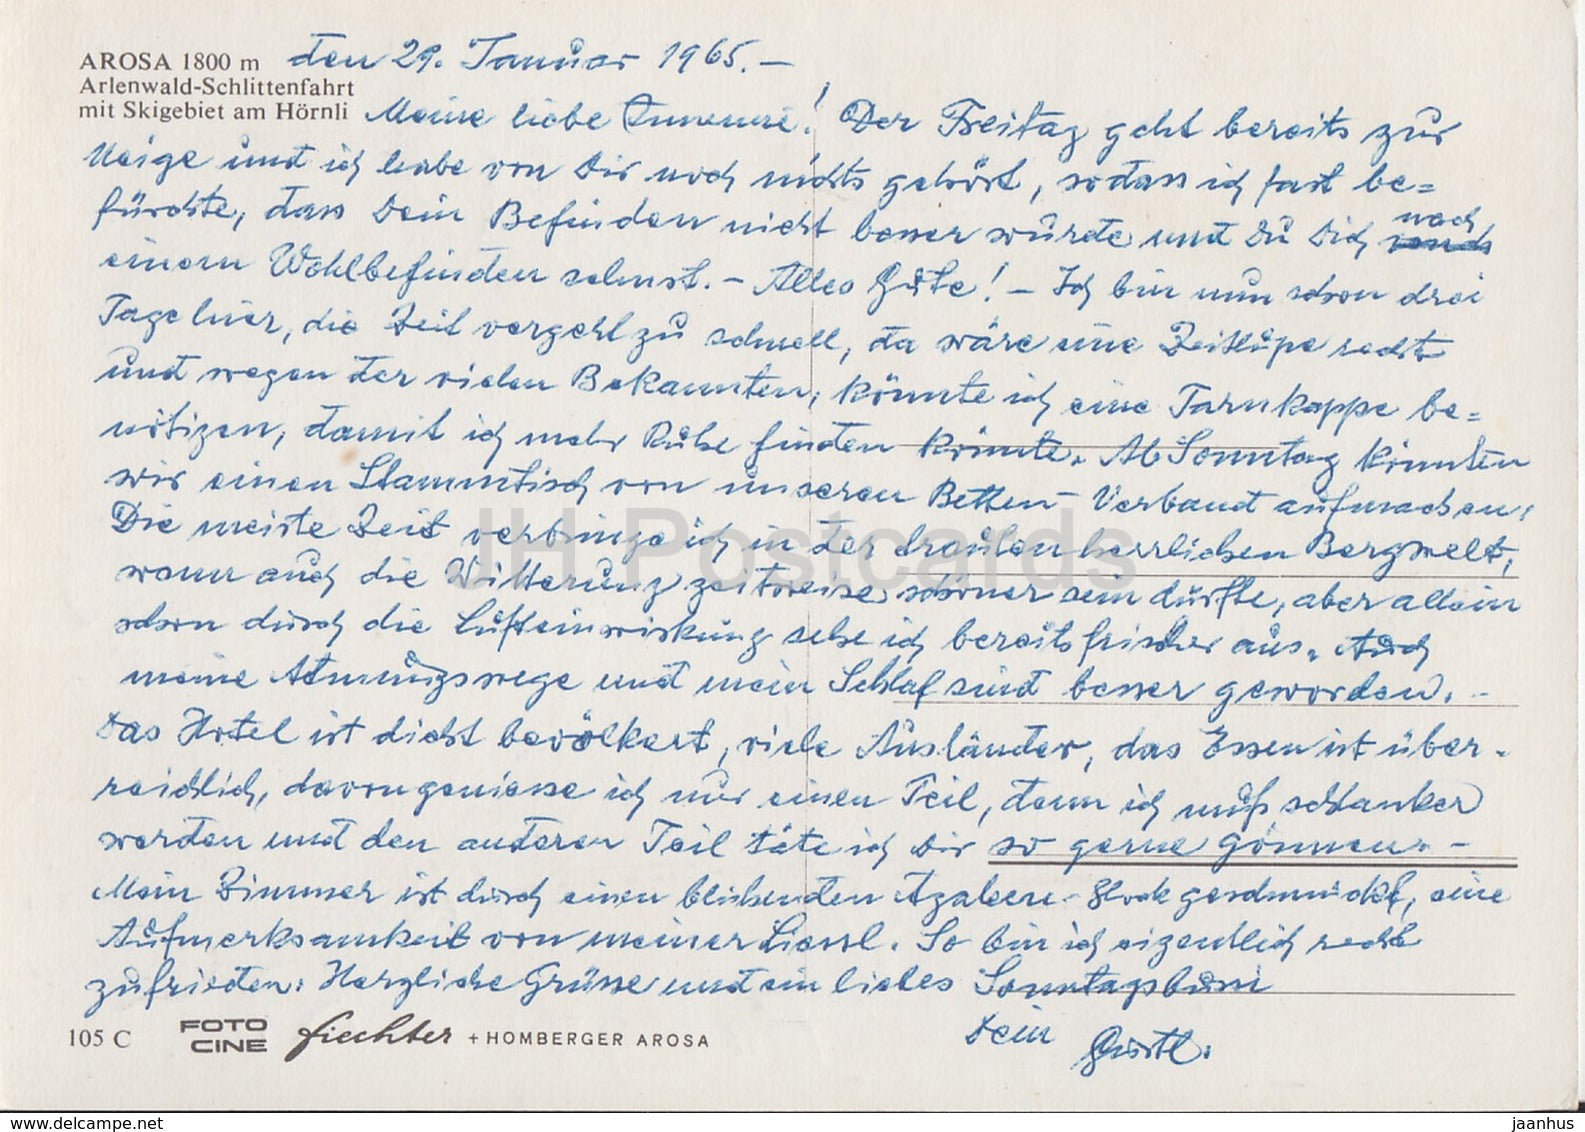 AROSA 1800 m den 29. Januar 1965.–
Arlenwald-Schlittenfahrt
mit Skigebiet am Hörnli Meine liebe! Der Freitag geht bereits zur
Neige und ich habe von Dir noch nichts gehört, sodass ich fast be=
fürchte, dass Dein Befinden nicht besser würde und Du Dich nach
einem Wohlbefinden sehnst. – Alles Gute! – Ich bin nun schon drei
Tage hier, die Zeit vergeht zu schnell, da wäre eine Zeitlupe recht
und wegen der vielen Bekannten, könnte ich eine Tarnkappe be=
nötigen, damit ich mehr Ruhe finden könnte. Ab Sonntag könnten
wir einen Stammtisch von unseren Betten-Verband aufmachen.
Die meiste Zeit verbringe ich in der draußen herrlichen Bergwelt,
wenn auch die Witterung zeitweise schöner sein dürfte, aber allein
schon durch die Lufteinwirkung sehe ich bereits frischer aus. Auch
meine Atmungswege und mein Schlaf sind besser geworden. –
Das Hotel ist dicht bevölkert, viele Ausländer, das Essen ist über-
reichlich, davon geniesse ich nur einen Teil, denn ich muß schlanker
werden und den anderen Teil täte ich Dir so gerne gönnen. –
Mein Zimmer ist durch einen blühenden Azaleen-Stock geschmückt, eine
Aufmerksamkeit von meiner Liesl. So bin ich eigentlich recht
zufrieden. Herzliche Grüsse und ein liebes Sonntagsbussi
Dein
105 C FOTO CINE Fiechter + HOMBERGER AROSA
JH Postcards
www.delcampe.net
jaanhus